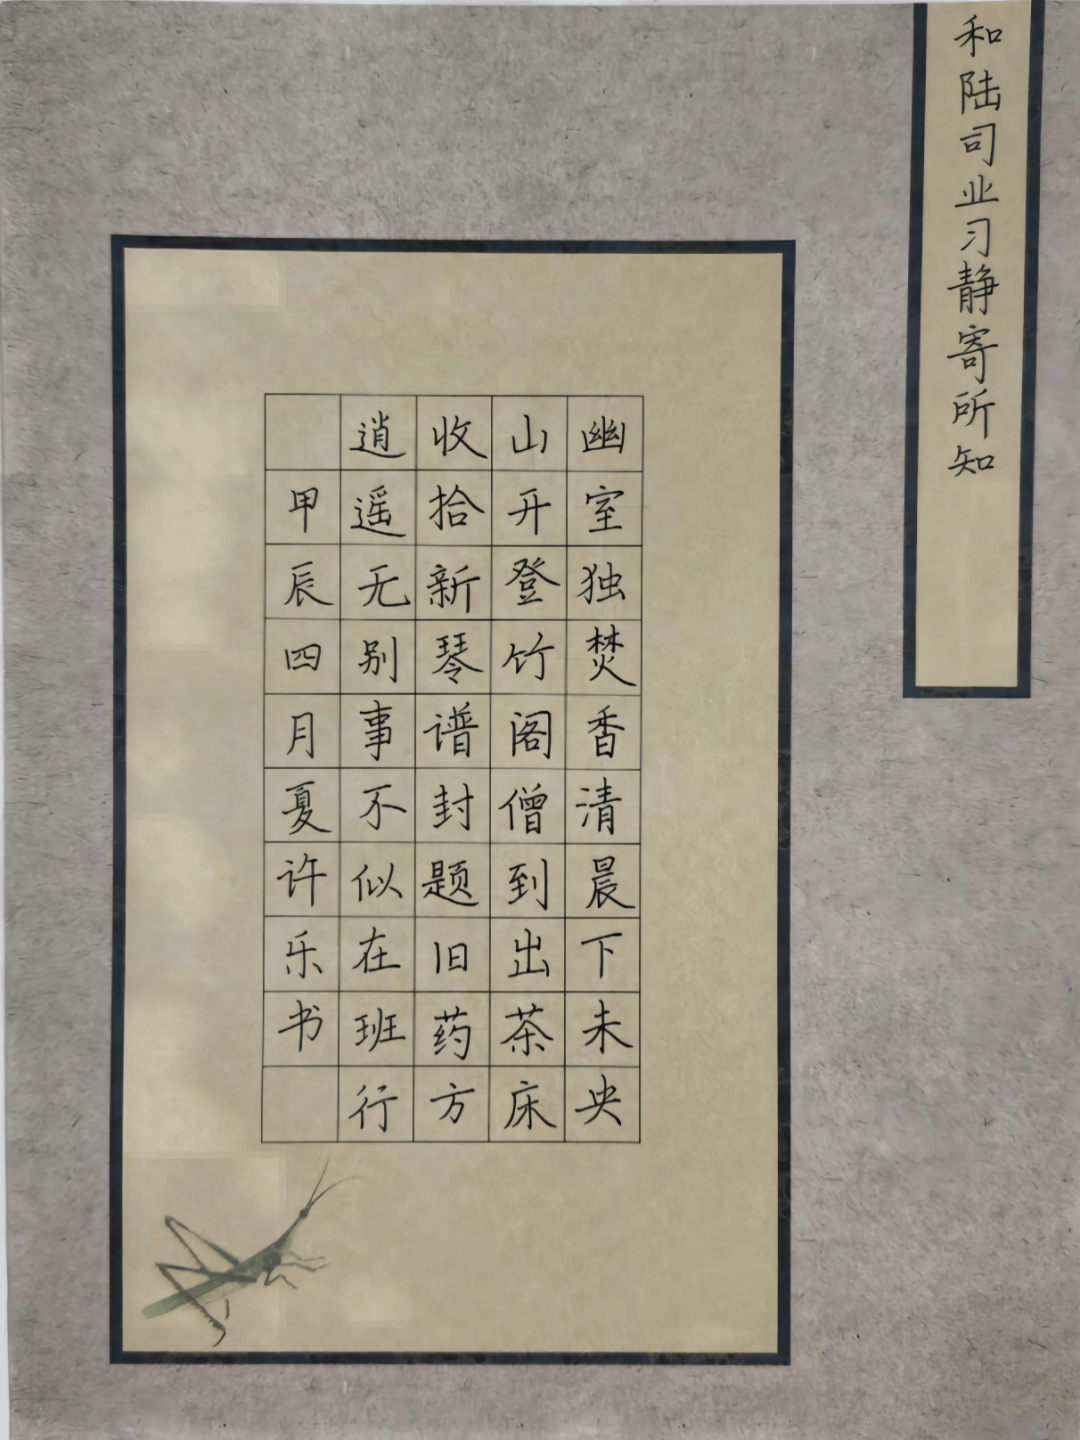 和陆司业习静寄所知
幽室独焚香清晨下未央
山开登竹阁僧到出茶床
收拾新琴谱封题旧药方
逍遥无别事不似在班行
甲辰四月夏许乐书